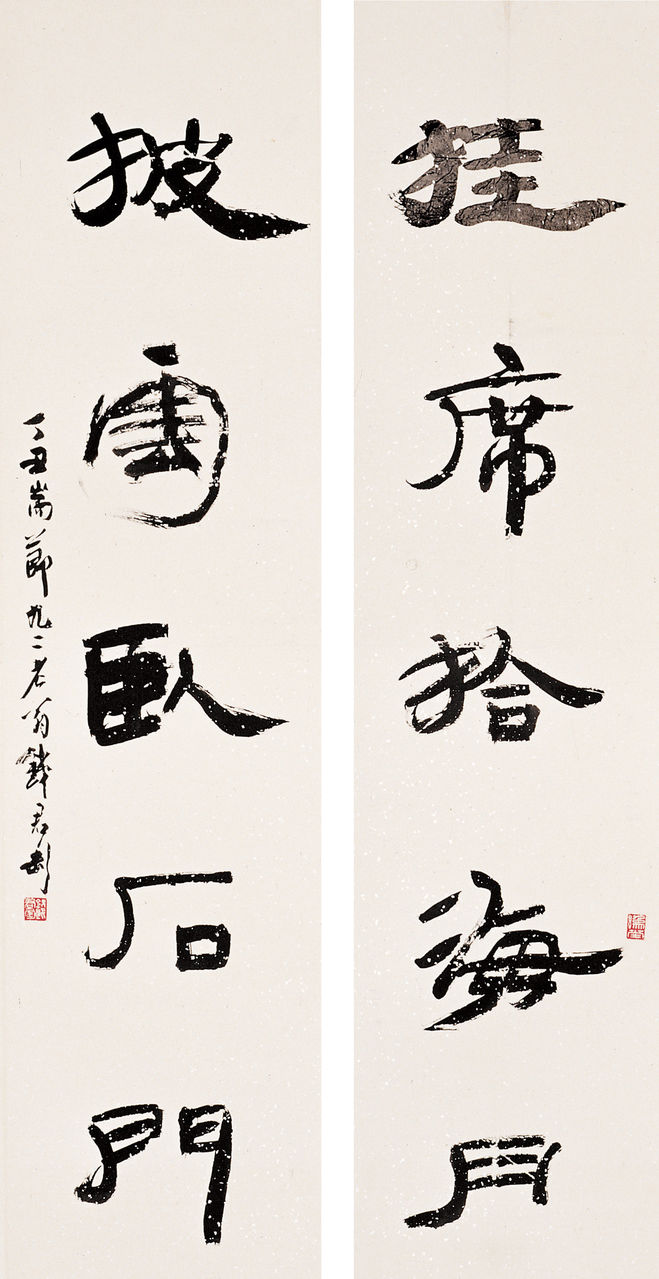 挂席拾海月
披雲臥石門
丁丑耑節九二老翁錢君匋